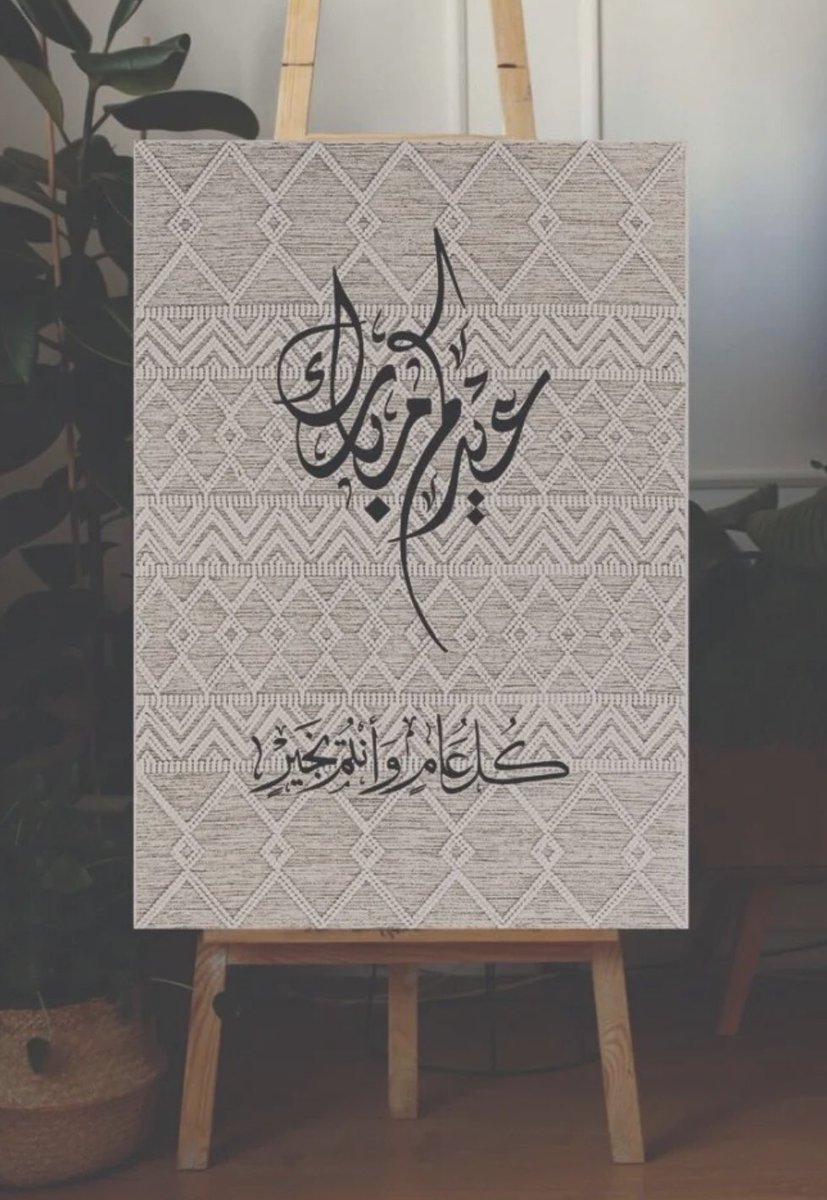 عيدكم مبارك
كُل عَامٍ وَأَنْتُمْ بِخَيْرٍ